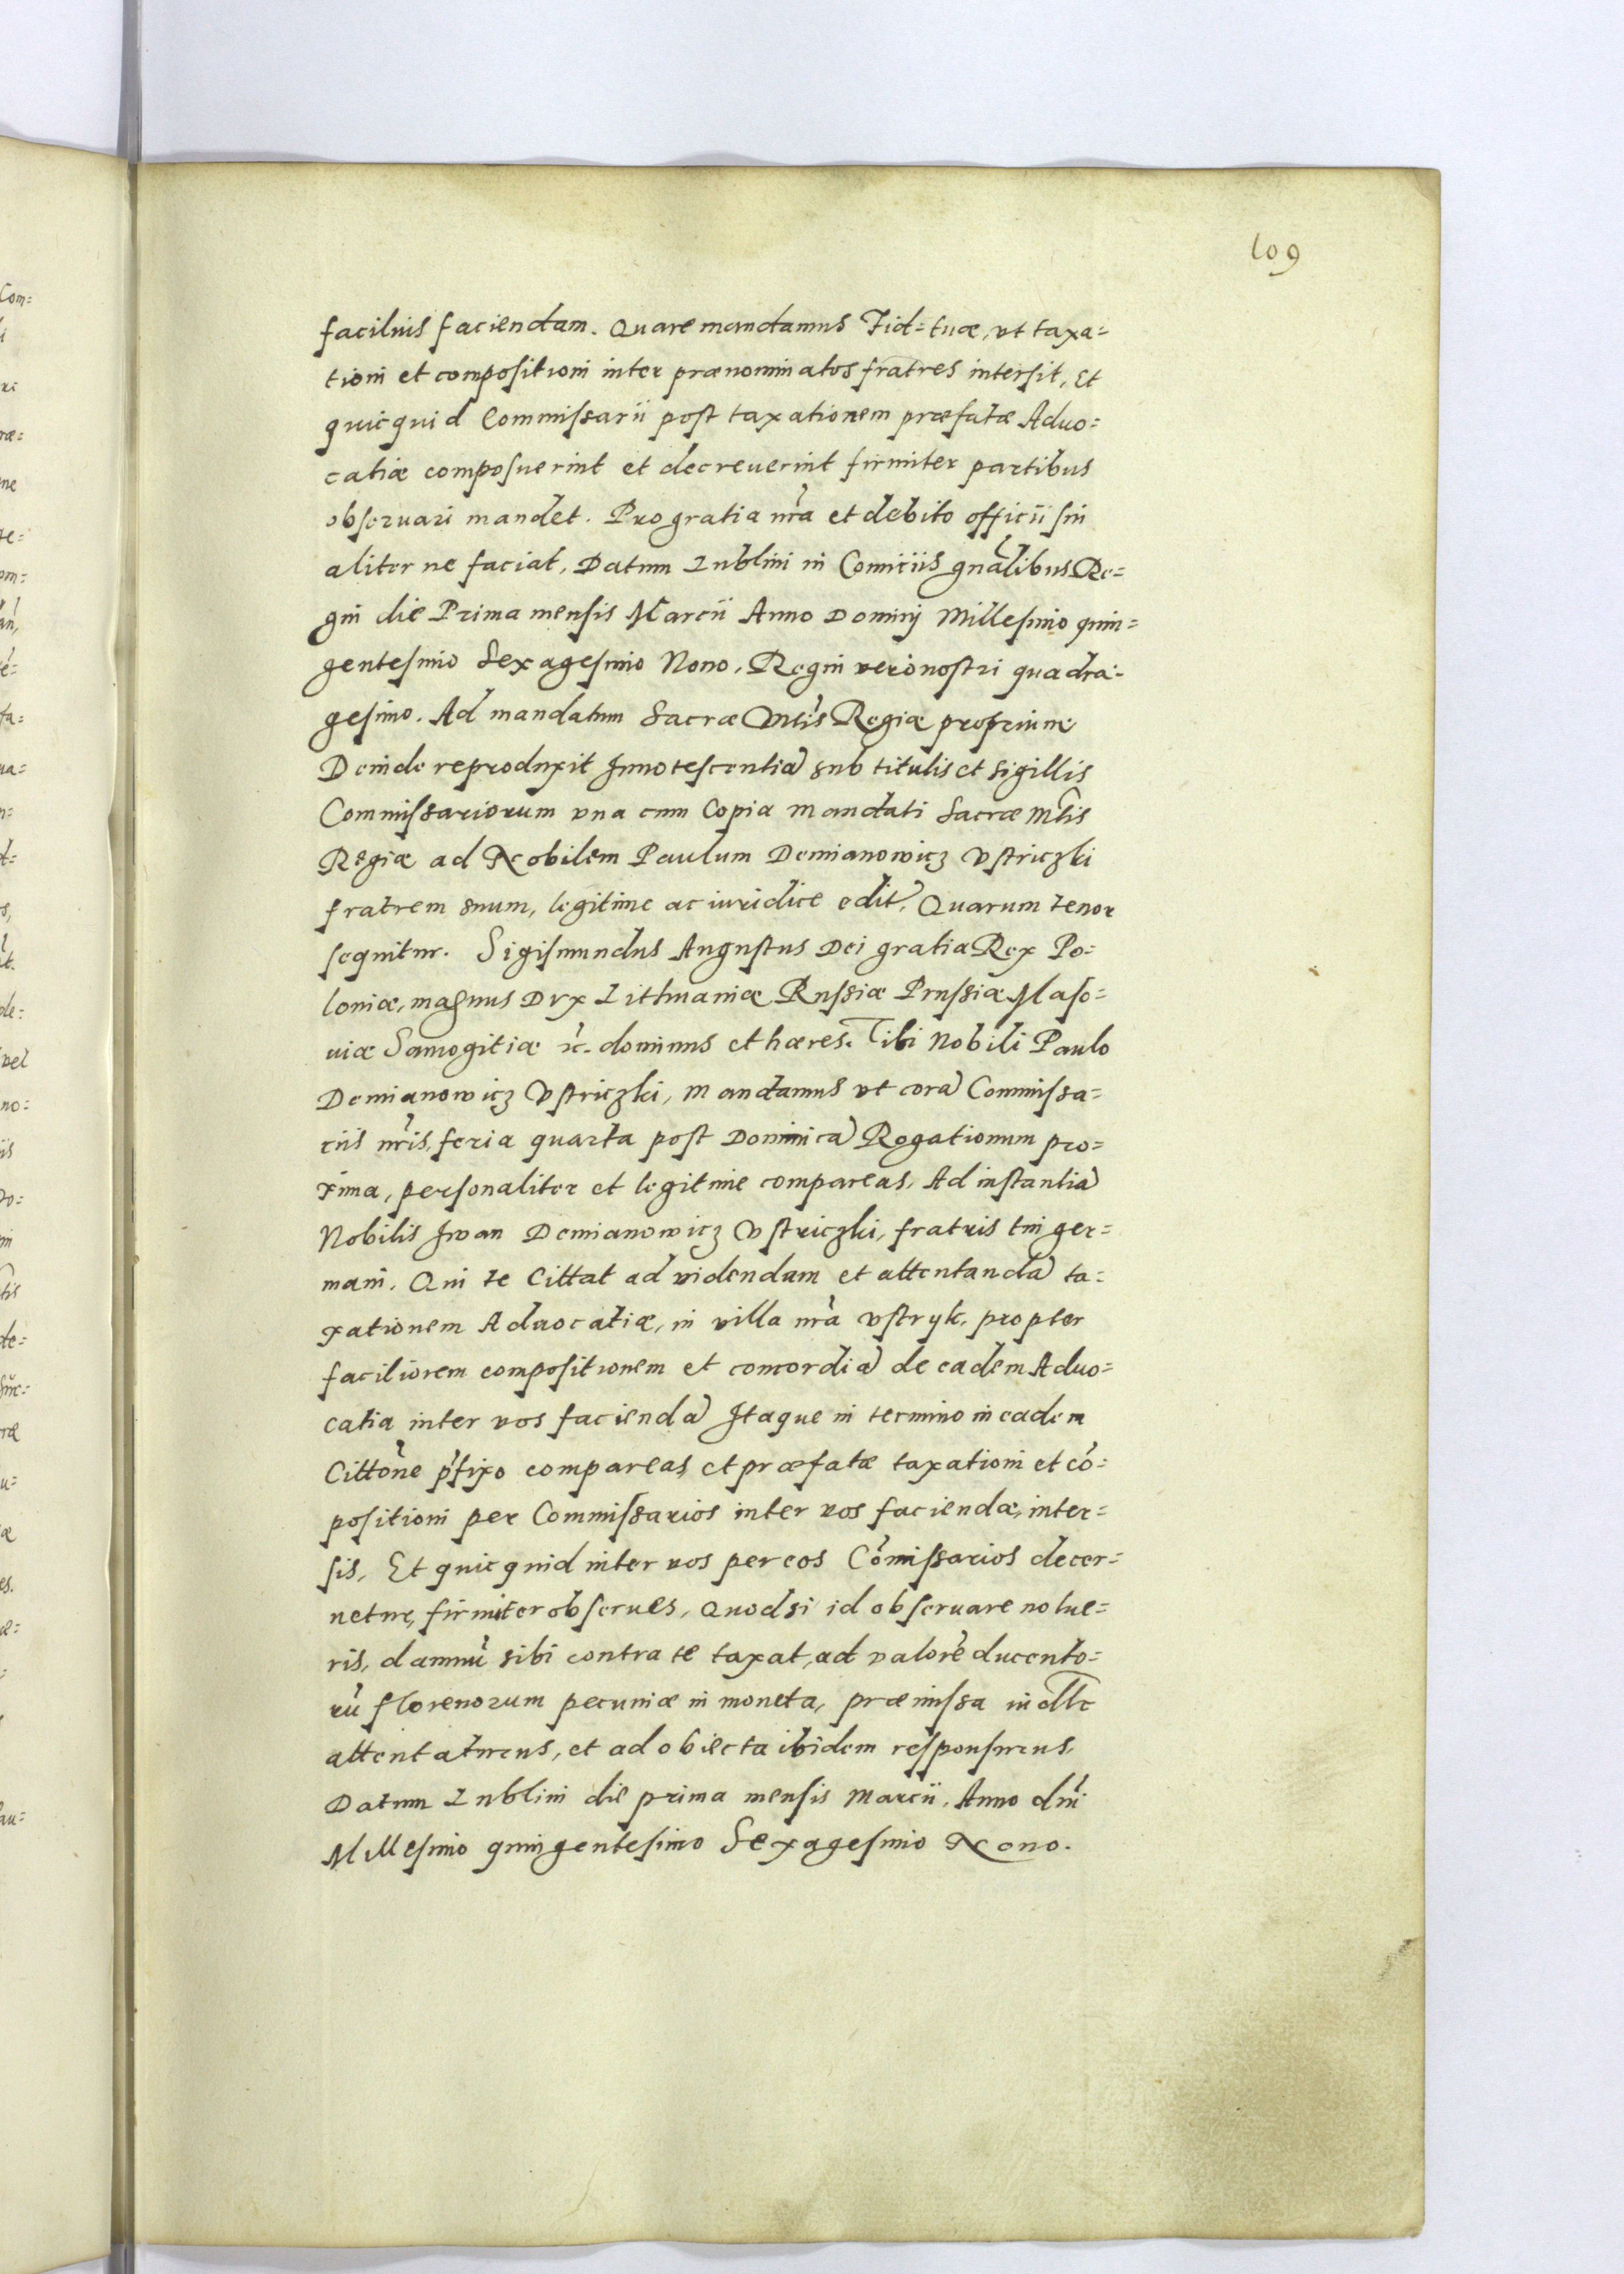 109
facilius faciendam. Quare mandamus Fid= tuæ, vt taxa=
tioni et compositioni inter prænominatos fratres intersit, Et
quicquid Commissarii post taxationem præfatæ Aduo=
catiæ composuerint et decreuerint firmiter partibus
obseruari mandet. Pro gratia nr̃a et debito officii sui
aliter ne faciat, Datum Lublini in Comitiis gnãlibus Re=
gni die Prima mensis Marcii Anno Dominij Millesimo quin=
gentesimo Sexagesimo Nono. Regni vero nostri quadra=
gesimo. Ad mandatum Sacræ Mtis Regiæ proprium
Deinde reproduxit Innotescentiã sub titulis et Sigillis
Commissariorum vna cum Copia mandati Sacræ Mtis
Regiæ ad Nobilem Paulum Demianowicz Vstriczki
fratrem suum, legitime ac iuridice edit. Quarum tenor
sequitur. Sigismundus Augustus Dei gratia Rex Po=
loniæ, magnus Dux Lithuaniæ Russiæ Prussiæ Maso=
uiæ Samogitiæ ꝛc. dominus et hæres. Tibi Nobili Paulo
Demianowicz Vstriczki, mandamus vt corã Commissa=
riis nr̃is, feria quarta post Dominicã Rogationum pro=
xima, personaliter et legitime compareas, Ad instantiã
Nobilis Iwan Demianowicz Vstriczki, fratris tui ger=
mani. Qui te Cittat ad videndam et attentandã ta=
xationem Aduocatiæ, in villa nr̃a vstryk, propter
faciliorem compositionem et concordiã de eadem Aduo=
catia inter vos faciendã Itaque in termino in eadem
Cittõne p̃fixo compareas, et præfatæ taxationi et cõ=
positioni per Commissarios inter vos faciendæ, inter=
sis, Et quicquid inter vos per eos Cõmissarios decer=
netur, firmiter obserues, Quod si id obseruare nolue=
ris, damnũ sibi contra te taxat, ad valorẽ ducento=
rũ florenorum pecuniæ in moneta, præmissa in
attentaturus, et ad obiecta ibidem responsurus,
Datum Lublini die prima mensis Marcii. Anno dnĩ
Millesimo quingentesimo Sexagesimo Nono.